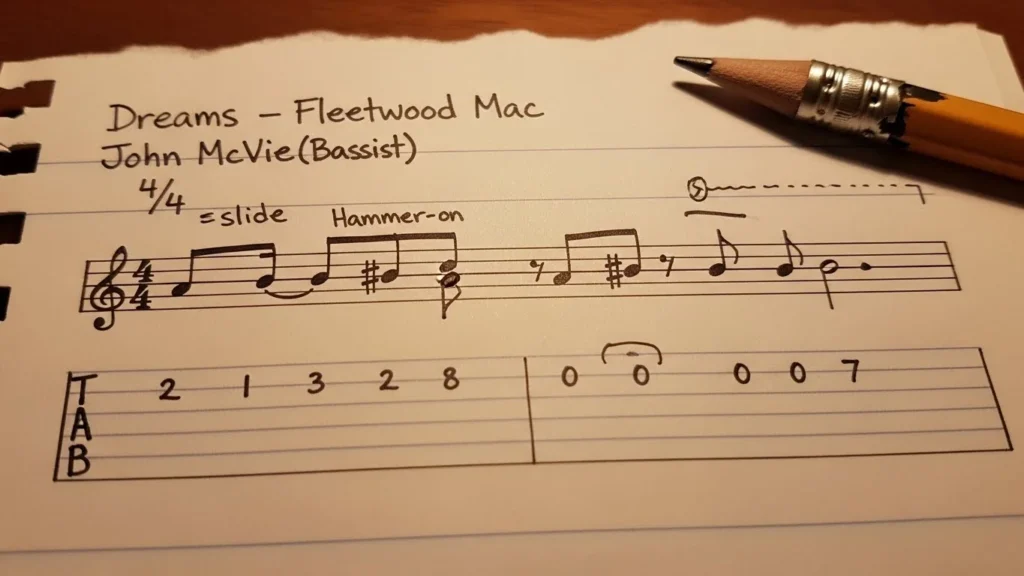 Dreams – Fleetwood Mac
John McVie (Bassist)
4/4
= slide Hammer-on
S
4
4
T 2 1 3 2 8 0 0 0 0 7
A
B